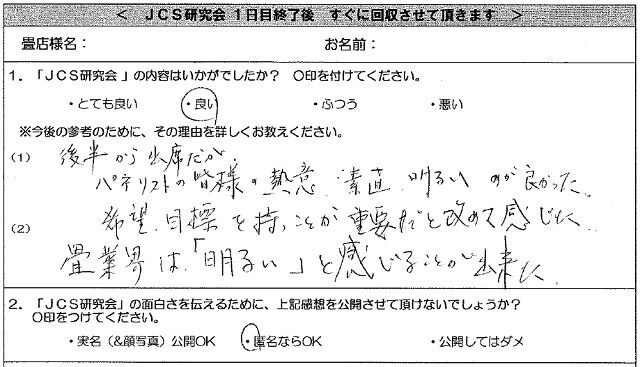 ＜ ＪＣＳ研究会 １日目終了後　すぐに回収させて頂きます ＞
畳店様名：　お名前：
１．「ＪＣＳ研究会 」の内容はいかがでしたか？　〇印を付けてください。
・とても良い　・良い　・ふつう　・悪い
※今後の参考のために、その理由を詳しくお教えください。
(1) 後半から出席だが、
パネリストの皆様の熱意、素直、明るい のが良かった。
希望、目標を持つことが重要だと改めて感じた。
(2)
畳業界は、「明るい」と感じることが出来た
２．「ＪＣＳ研究会」の面白さを伝えるために、上記感想を公開させて頂けないでしょうか？
〇印をつけてください。
・実名（&顔写真）公開OK　・匿名ならOK　・公開してはダメ